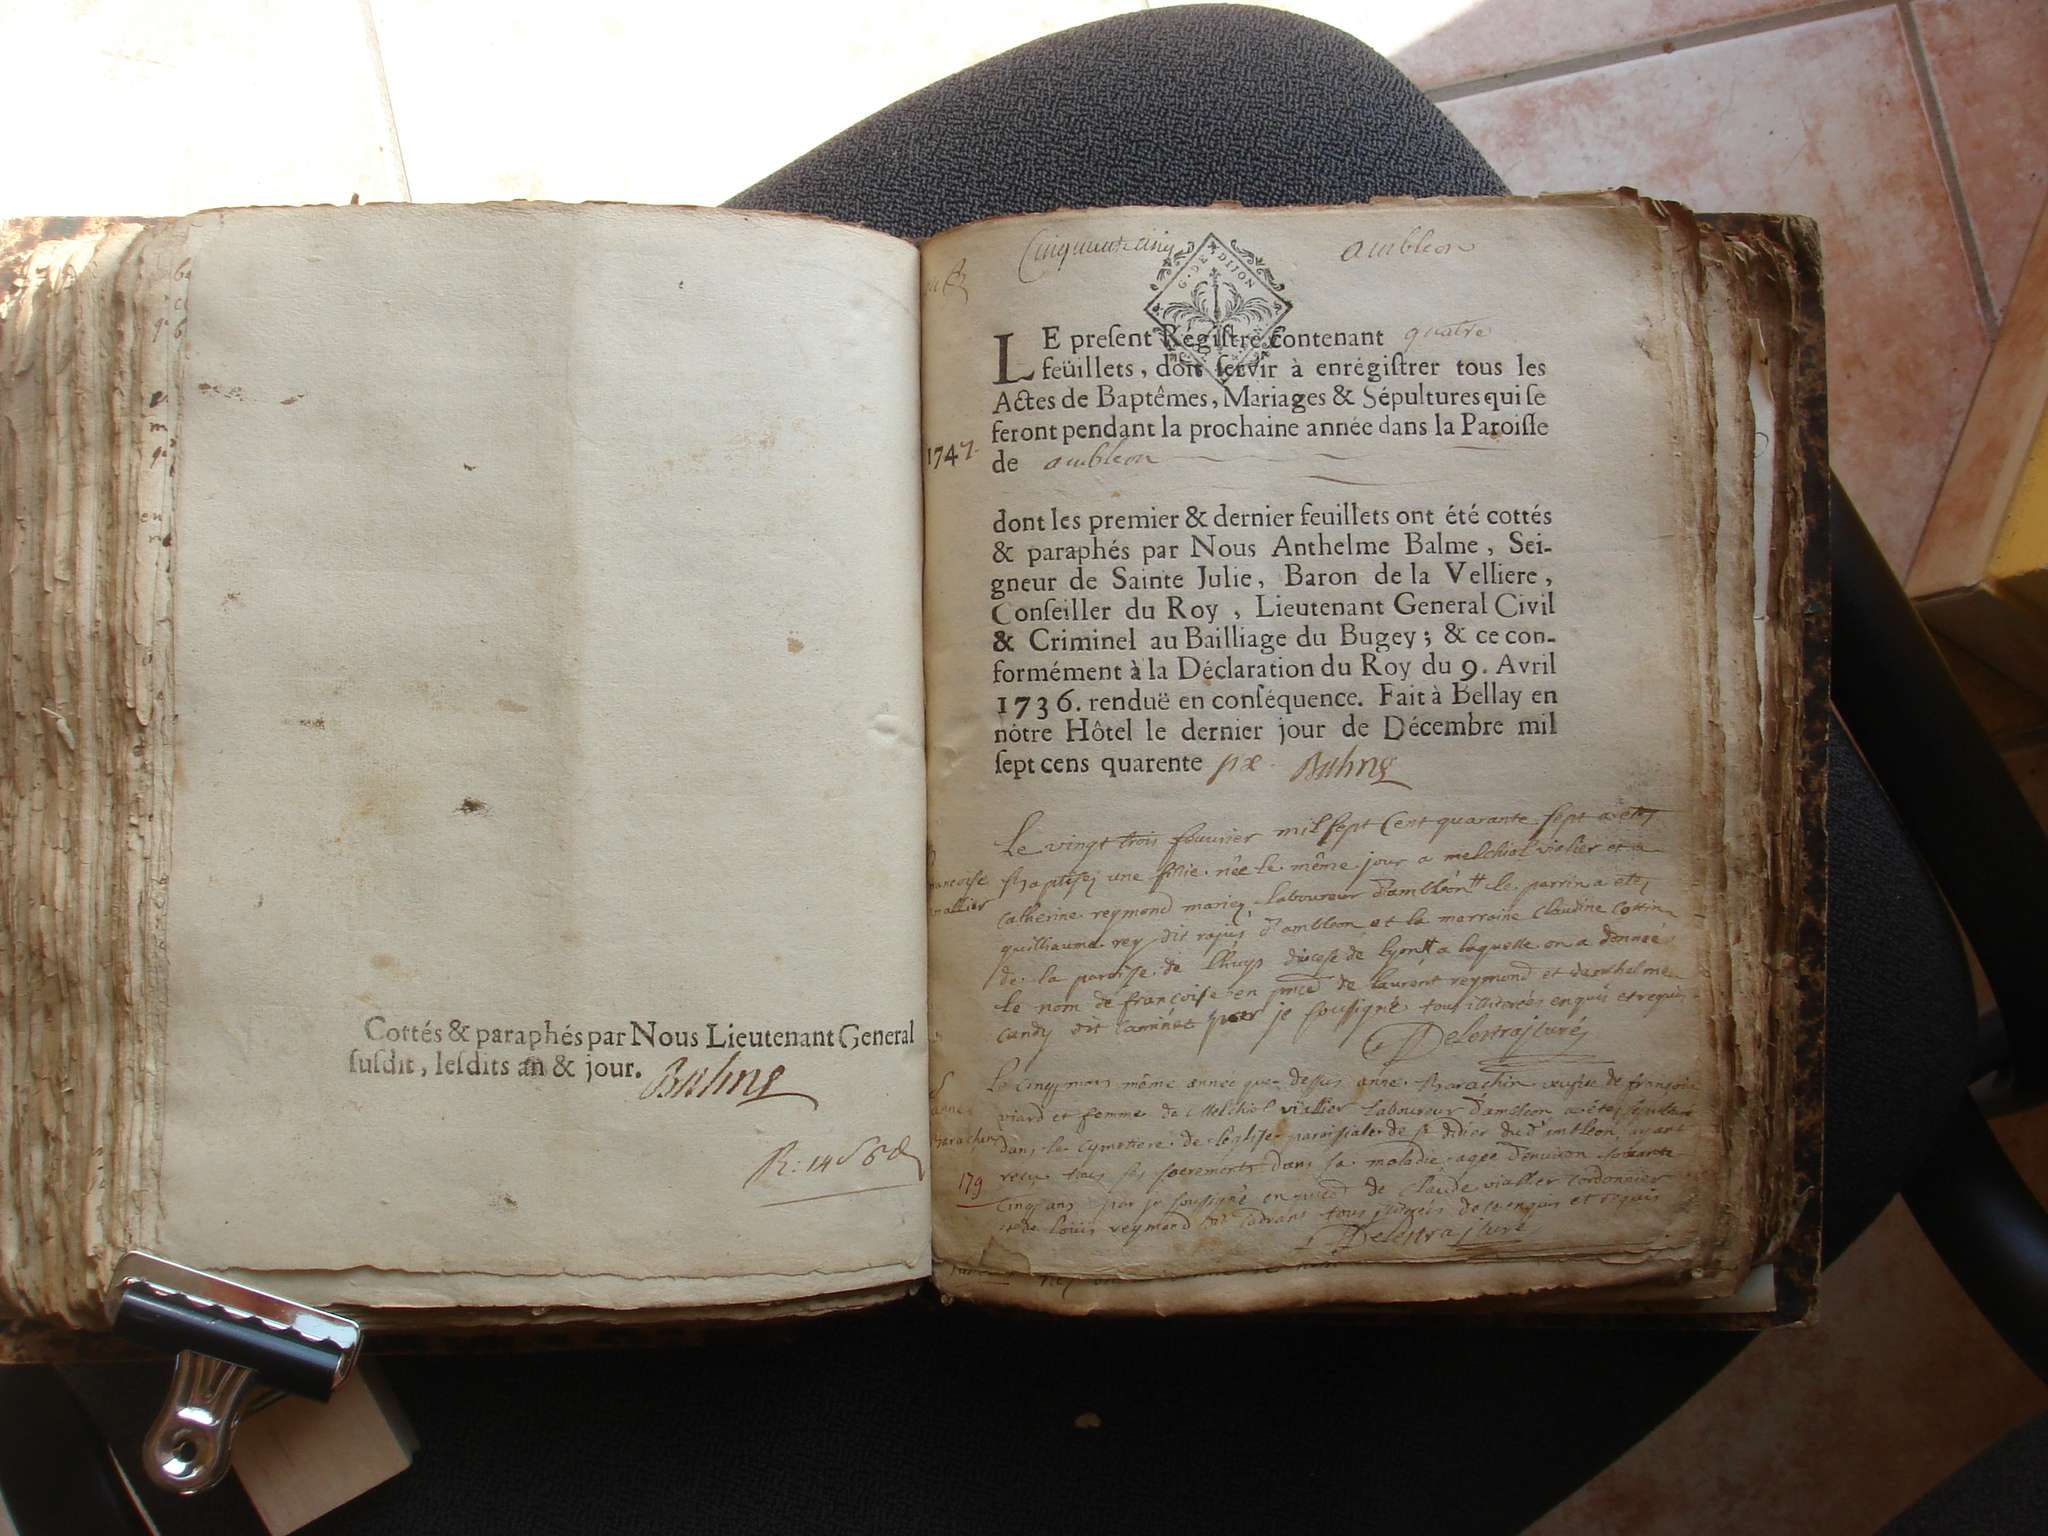 Cottés & paraphés par Nous Lieutenant General
susdit, lesdits an & jour. Balme
Cinquante cinq ambleon
G. DE DIJON
LE present Régistre contenant quatre
feüillets, doit servir à enrégistrer tous les
Actes de Baptêmes, Mariages & Sépultures qui se
feront pendant la prochaine année dans la Paroisse
1747.
de ambleon
dont les premier & dernier feuillets ont été cottés
& paraphés par Nous Anthelme Balme, Sei-
gneur de Sainte Julie, Baron de la Velliere,
Conseiller du Roy, Lieutenant General Civil
& Criminel au Bailliage du Bugey; & ce con-
formément à la Déclaration du Roy du 9. Avril
1736. renduë en conséquence. Fait à Bellay en
nôtre Hôtel le dernier jour de Décembre mil
sept cens quarente six. Balme
Le vingt trois fouvrier mil sept Cent quarante sept a etez
francoise
viallier
Baptisez une fillie née le même jour a melchiol vialier et a
catherine reymond mariez, laboureur d'ambléon le parrin a etez
guilliaume rey dit d'ambleon et la marraine claudine cottin
de la paroisse de lhuys diocese de lyon a laquelle on a donneé
le nom de francoise en pnce de laurent reymond et d'anthelme
candy dit je soussigné tous illiterées enquis et requis
Delestraz curé
Le cinq mars même année que dessus anne Barachin veufve de françois
anne
Barachin
viard et femme de Melchiol viallier laboureur d'ambleon a etez
dans le cymetiere de léglise paroisiale de st didier du d' ambleon, ayant
179
reçu tous ses sacrements dans sa maladie agée d'environ soixante
cinq ans par je soussigné en pnce de claude viallier cordonnier
et de loüis reymond tous de ce enquis et requis
Delestraz curé